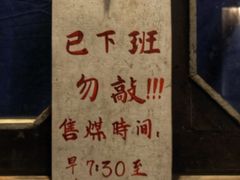 已下班
勿敲!!!
售煤時间:
早7:30至